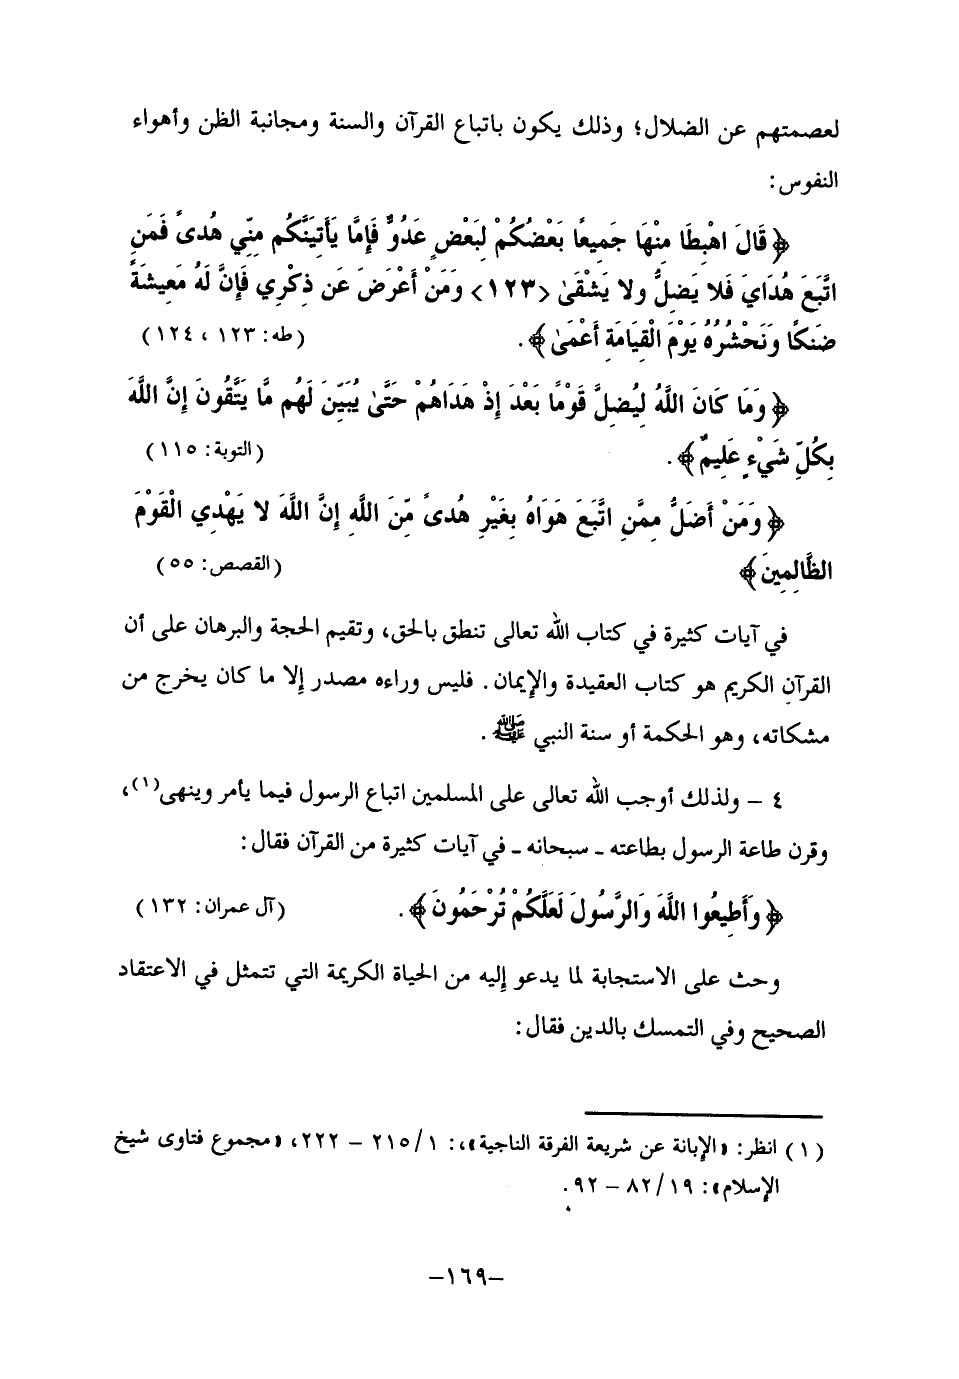 لعصمتهم عن الضلال؛ وذلك يكون باتباع القرآن والسنة ومجانبة الظن وأهواء
النفوس:
﴿قَالَ اهْبِطَا مِنْهَا جَمِيعًا بَعْضُكُمْ لِبَعْضٍ عَدُوٌّ فَإِمَّا يَأْتِيَنَّكُم مِنِّي هُدىً فَمَنِ
اتَّبَعَ هُدَايَ فَلا يَضِلُّ ولا يَشْقَىٰ <١٢٣> وَمَنْ أَعْرَضَ عَن ذِكْرِي فَإِنَّ لَهُ مَعِيشَةً
ضَنكًا وَنَحْشُرُهُ يَوْمَ الْقِيَامَةِ أَعْمَىٰ﴾. (طه: ١٢٣ ، ١٢٤)
﴿وَمَا كَانَ اللَّهُ لِيُضِلَّ قَوْمًا بَعْدَ إِذْ هَدَاهُمْ حَتَّىٰ يُبَيِّنَ لَهُم مَّا يَتَّقُونَ إِنَّ اللَّهَ
بِكُلِّ شَيْءٍ عَلِيمٌ﴾. (التوبة: ١١٥)
﴿وَمَنْ أَضَلُّ مِمَّنِ اتَّبَعَ هَوَاهُ بِغَيْرِ هُدىً مِّنَ اللَّهِ إِنَّ اللَّهَ لا يَهْدِي الْقَوْمَ
الظَّالِمِينَ﴾ (القصص: ٥٥)
في آيات كثيرة في كتاب الله تعالى تنطق بالحق، وتقيم الحجة والبرهان على أن
القرآن الكريم هو كتاب العقيدة والإيمان. فليس وراءه مصدر إلا ما كان يخرج من
مشكاته، وهو الحكمة أو سنة النبي ﷺ.
٤ – ولذلك أوجب الله تعالى على المسلمين اتباع الرسول فيما يأمر وينهى(١)،
وقرن طاعة الرسول بطاعته - سبحانه - في آيات كثيرة من القرآن فقال:
﴿وَأَطِيعُوا اللَّهَ وَالرَّسُولَ لَعَلَّكُمْ تُرْحَمُونَ﴾. (آل عمران: ١٣٢)
وحث على الاستجابة لما يدعو إليه من الحياة الكريمة التي تتمثل في الاعتقاد
الصحيح وفي التمسك بالدين فقال:
(١) انظر: «الإبانة عن شريعة الفرقة الناجية»،: ٢١٥/١ – ٢٢٢، «مجموع فتاوى شيخ
الإسلام»: ٨٢/١٩ – ٩٢.
–١٦٩–